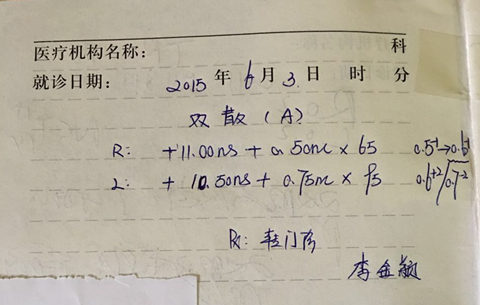 医疗机构名称： 科
就诊日期： 2015 年 6 月 3 日 时 分
双散（A）
R: +11.00DS + 0.50DC × 65 0.5⁻¹→0.6⁻¹
L: +10.50DS + 0.75DC × 95 0.6⁺²/0.7⁻²
Rx: 转门诊